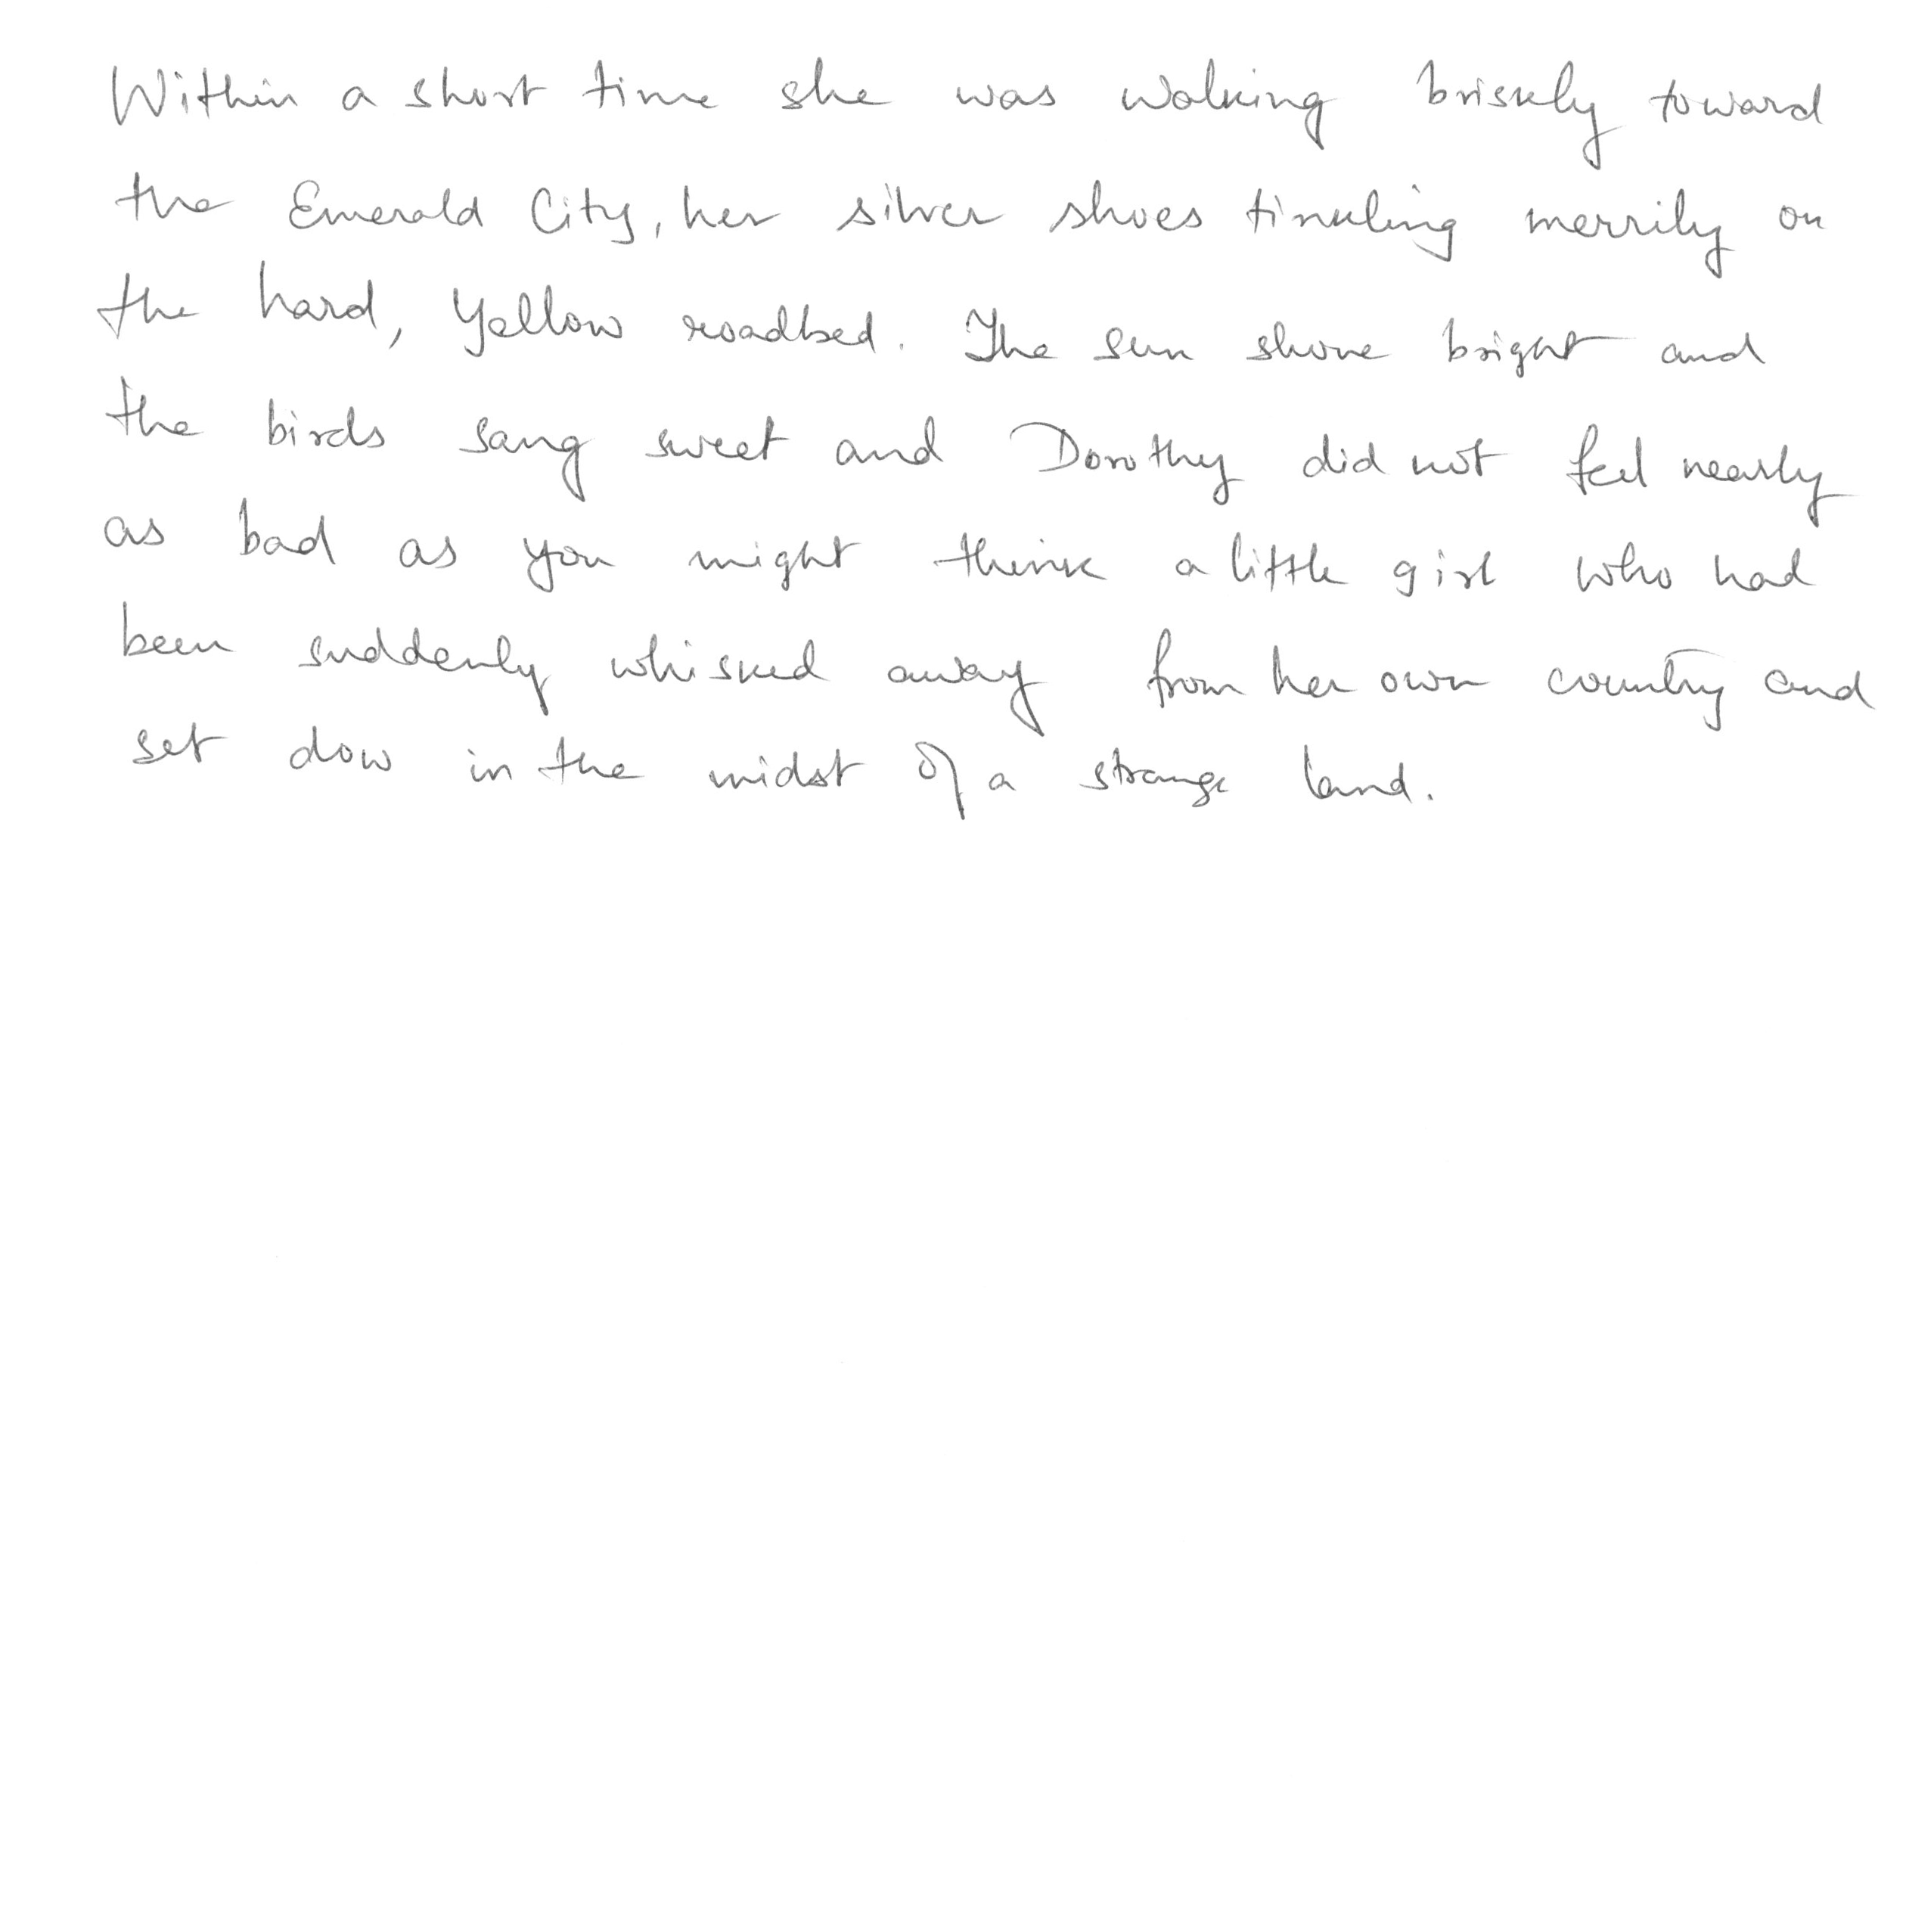 Within a short time she was walking briskly toward
the Emerald City, her silver shoes tinkling merrily on
the hard, yellow roadbed. The sun shone bright and
the birds sang sweet and Dorothy did not feel nearly
as bad as you might think a little girl who had
been suddenly whisked away from her own country and
set dow in the midst of a strange land.